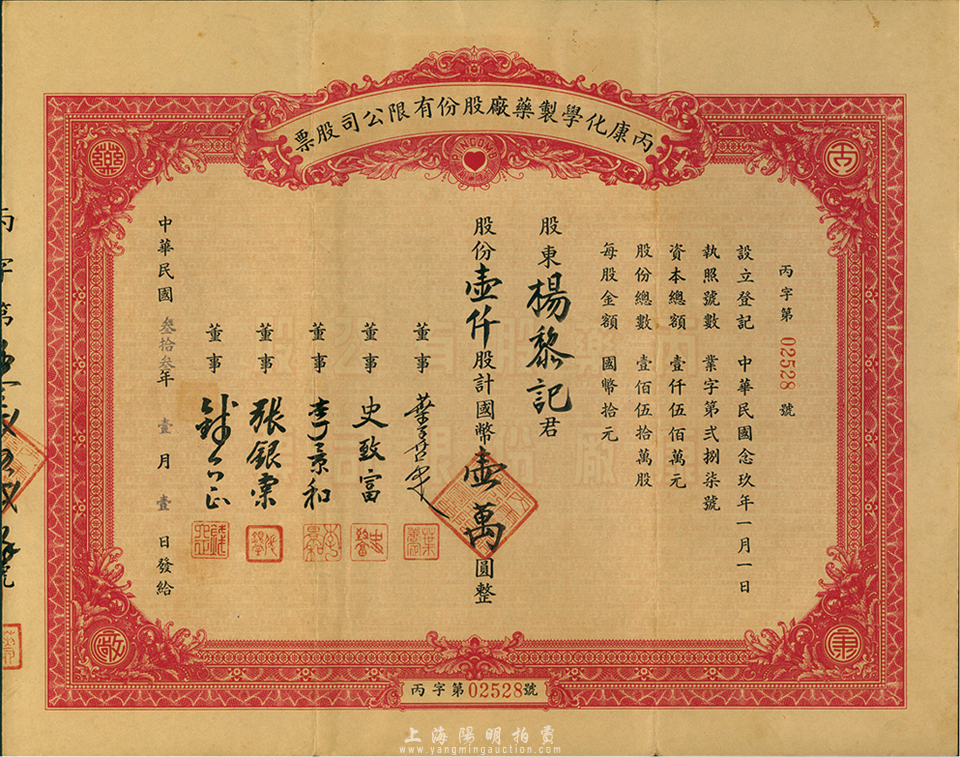 丙康化學製藥廠股份有限公司股票
PINCOMB
藥
丙
丙字第 02528 號
設立登記 中華民國念玖年一月一日
執照號數 業字第弍捌柒號
資本總額 壹仟伍佰萬元
股份總數 壹佰伍拾萬股
每股金額 國幣拾元
股東楊黎記君
股份壹仟股計國幣壹萬圓整
董事
董事 史致富
董事 李景和
董事 張銀棠
董事
中華民國叁拾叁年壹月壹日發給
丙字第
號
廠
丙字第02528號
上海陽明拍賣
www.yangmingauction.com